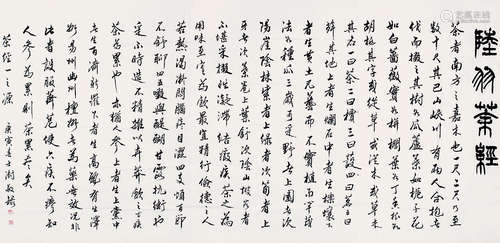 陸羽茶經
茶者南方之嘉木也一尺二尺乃至
數十尺其巴山峽川有兩人合抱者
伐而掇之其樹如瓜蘆葉如梔子花
如白薔薇實如栟櫚葉如丁香根如
胡桃其字或從草或從木或草木并
其名一曰茶二曰檟三曰蔎四曰茗五曰
荈其地上者生爛石中者生櫟壤下
者生黃土凡藝而不實植而罕茂
法如種瓜三歲可采野者上園者次
陽崖陰林紫者上綠者次筍者上
牙者次葉卷上葉舒次陰山坡谷者
不堪采掇性凝滯結瘕疾茶之為
用味至寒為飲最宜精行儉德之人
若熱渴凝悶腦疼目澀四支煩百節
不舒聊四五啜與醍醐甘露抗衡也
采不時造不精雜以卉莽飲之成疾
茶為累也亦猶人參上者生上黨中
者生百濟新羅下者生高麗有生澤
州易州幽州檀州者為藥無效況非
此者設服薺苨使六疾不瘳知
人參為累則茶累盡矣
茶經一之源 庚寅春